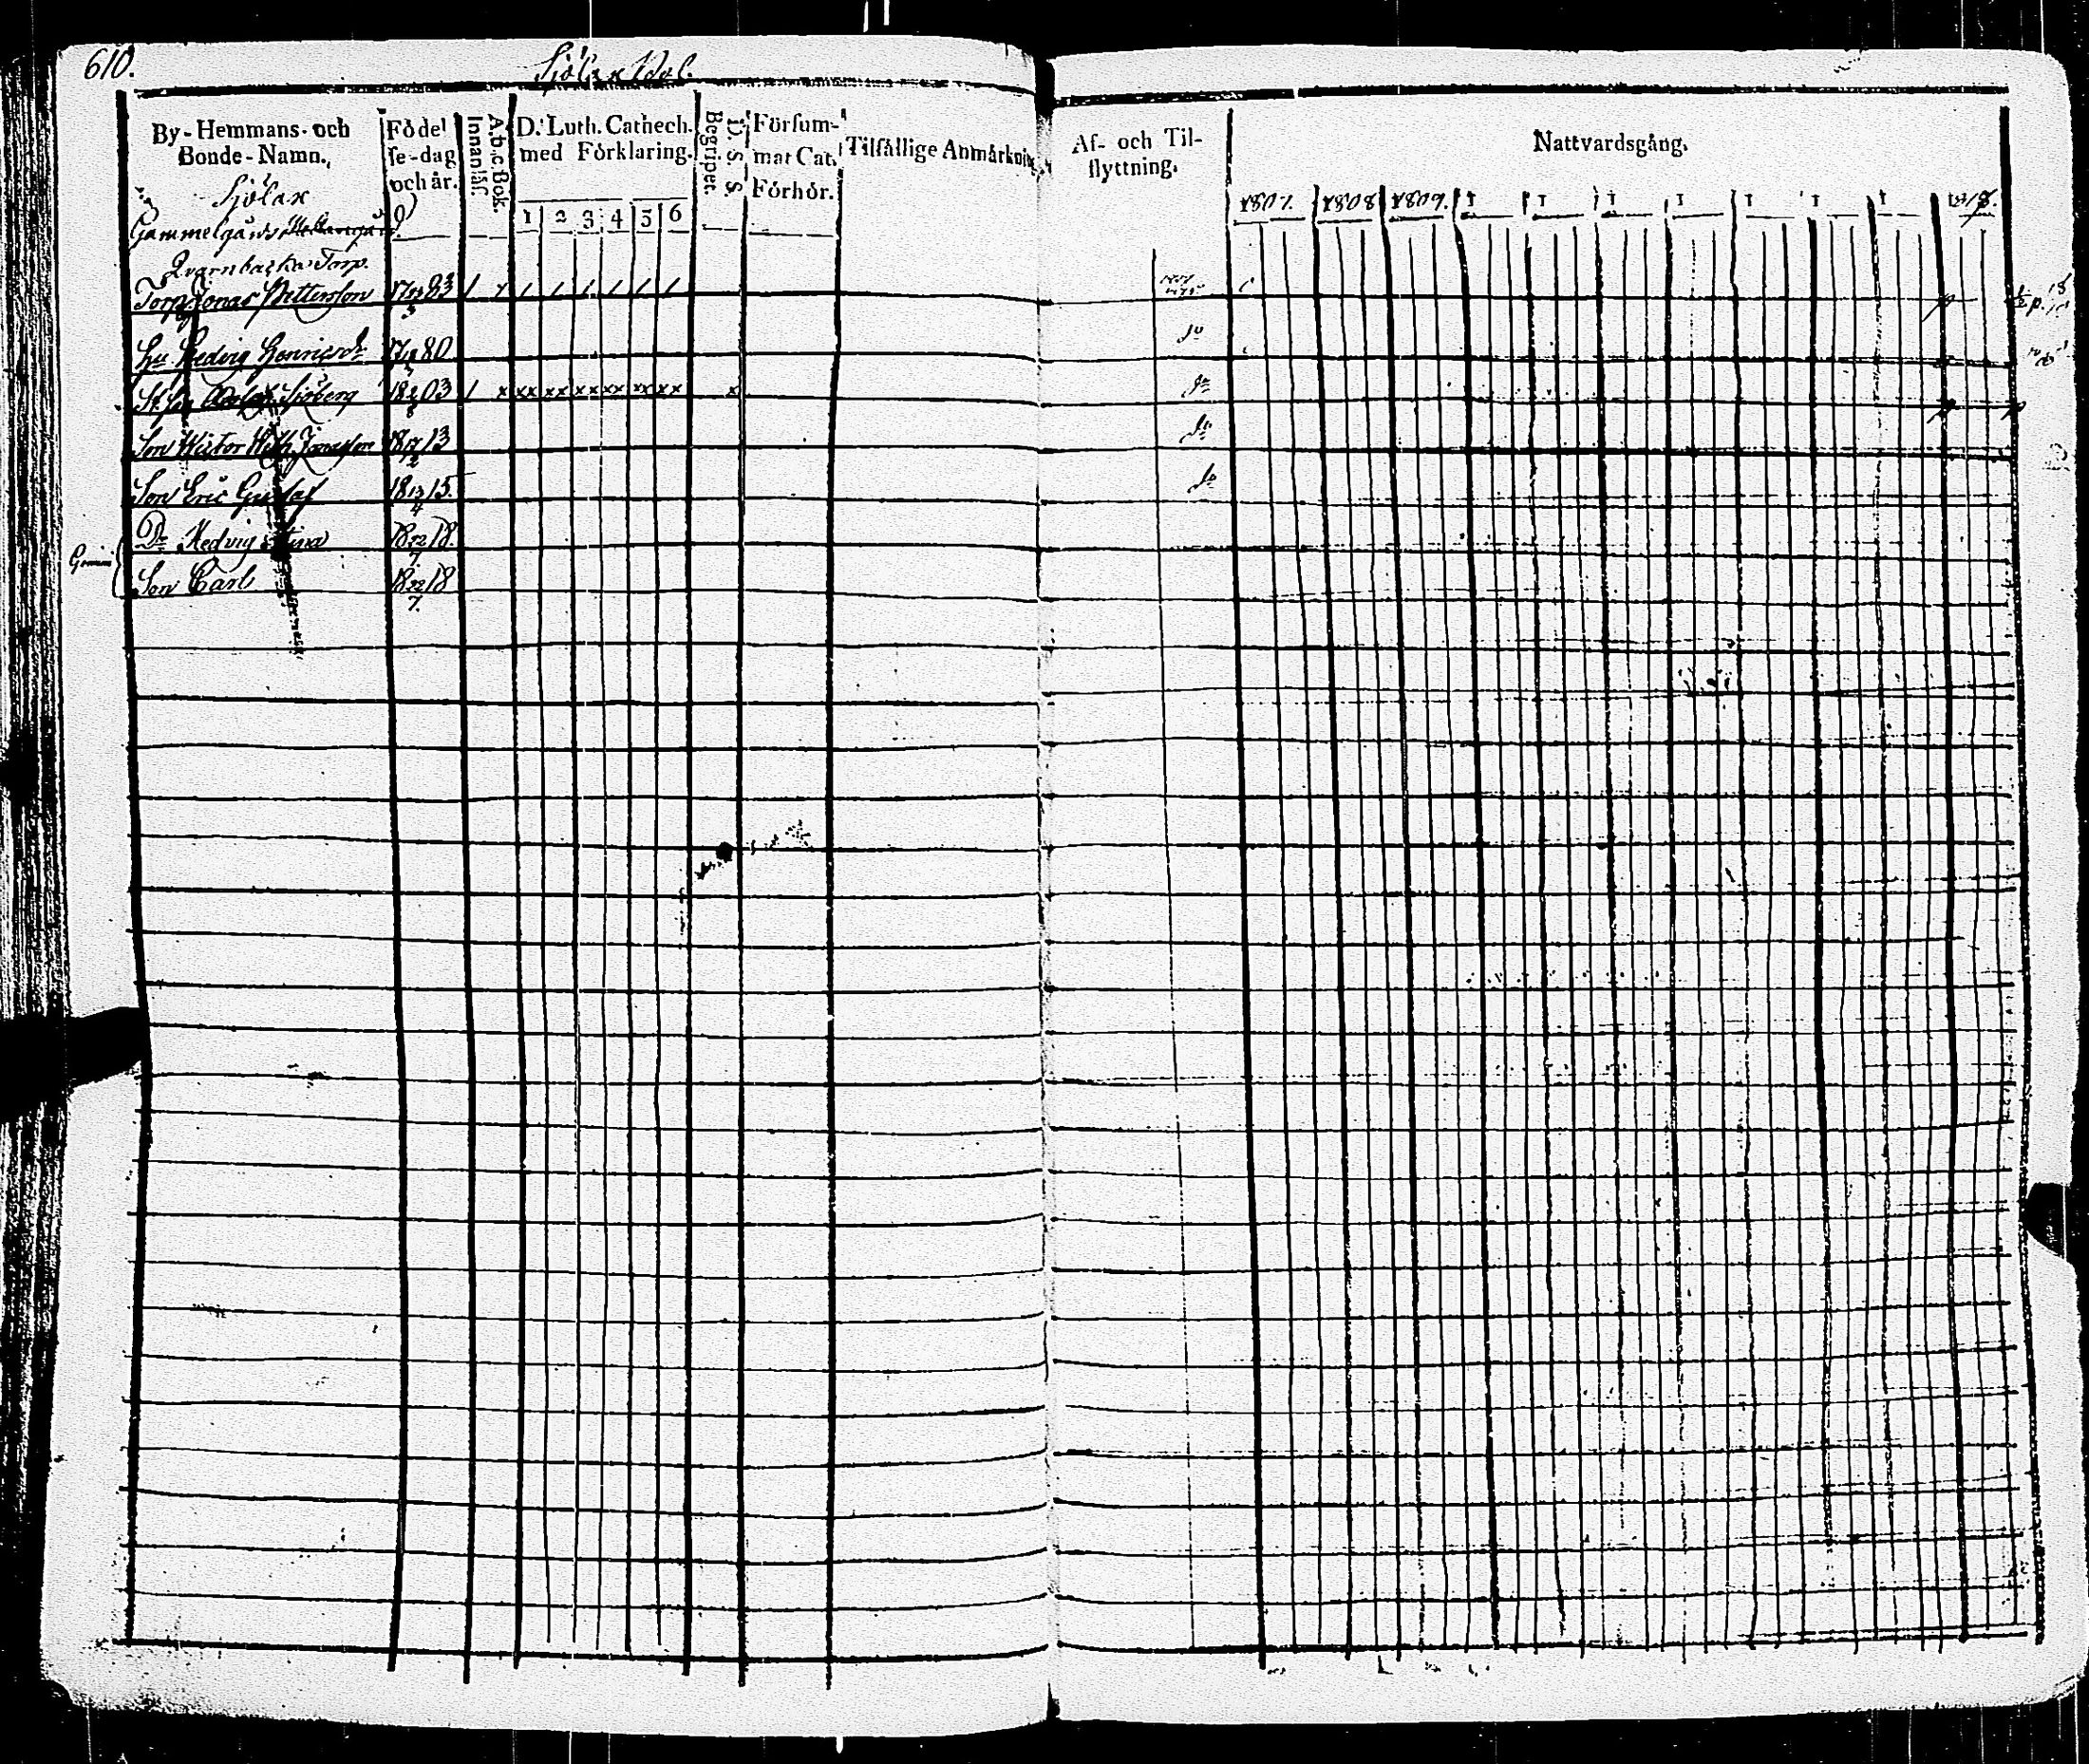 610.
Sjölax
By-Hemmans- och
Bonde-Namn.
Födel
se-dag
och år.
Innanläs.
A.b.c. Bok.
D. Luth. Cathech.
med Förklaring.
1 2 3 4 5 6
Begripet.
D. S. S.
Försum-
mat Cat.
Förhör.
Tilfällige Anmärknin
Af- och Til-
flyttning.
Nattvardsgång.
1807. 1808 1809. 1 1 1 1 1 1 1 18.
Sjölax
Gammelgårds
Qvarnbacka Torp.
Torp Jonas Petterson 17 83 1
Hu Hedvig Henricsdr 17 80 do
Sjöberg 18 03 1 x xx xx xx xx xx xx x do
Son Victor Jonasson 18 17/2 13 do
Son Eric Gustaf 18 13/4 15. do
Gemini
Dr Hedvig Stina 18 22/7 18.
Son Carl 18 22/7 18